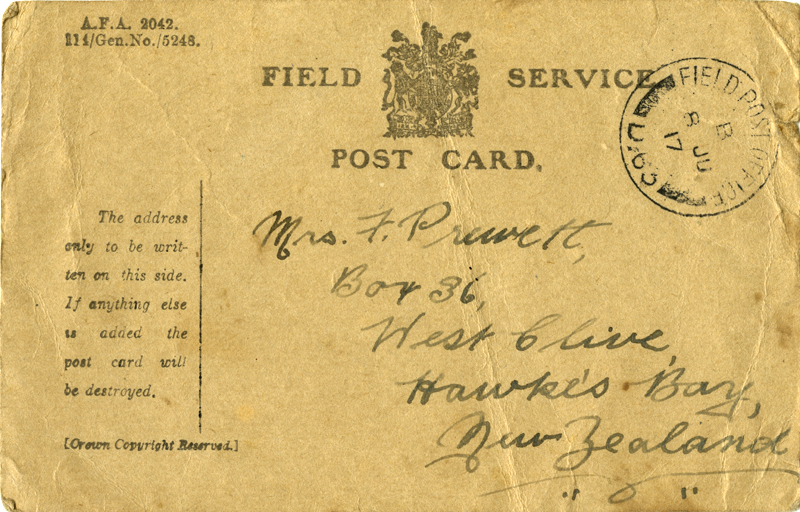 A.F.A. 2042.
114/Gen.No./5248.
FIELD SERVICE
POST CARD.
FIELD POST OFFICE
B
8 JU
17
D.83
The address
only to be writ-
ten on this side.
If anything else
is added the
post card will
be destroyed.
[Crown Copyright Reserved.]
Mrs. F. Prewett,
Box 36,
West Clive,
Hawke's Bay,
New Zealand